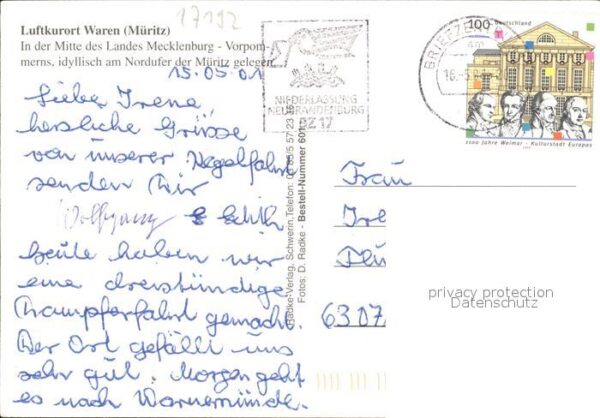 17192
Luftkurort Waren (Müritz)
In der Mitte des Landes Mecklenburg - Vorpom-
merns, idyllisch am Nordufer der Müritz gelegen.
15.05.01
Liebe Irene,
herzliche Grüsse
von unserer Kegelfahrt
senden Dir
Wolfgang & Edith
Heute haben wir
eine dreistündige
Dampferfahrt gemacht.
Der Ort gefällt uns
sehr gut. Morgen geht
es nach Warnemünde.
NIEDERLASSUNG
NEUBRANDENBURG
BZ 17
BRIEFZEN
16.-5.0
100 Deutschland
1100 Jahre Weimar - Kulturstadt Europas
Radke-Verlag, Schwerin, Telefon: 03 85/5 57 23
Fotos: D. Radke - Bestell-Nummer 601
Frau
Ire
Flu
6307
privacy protection
Datenschutz